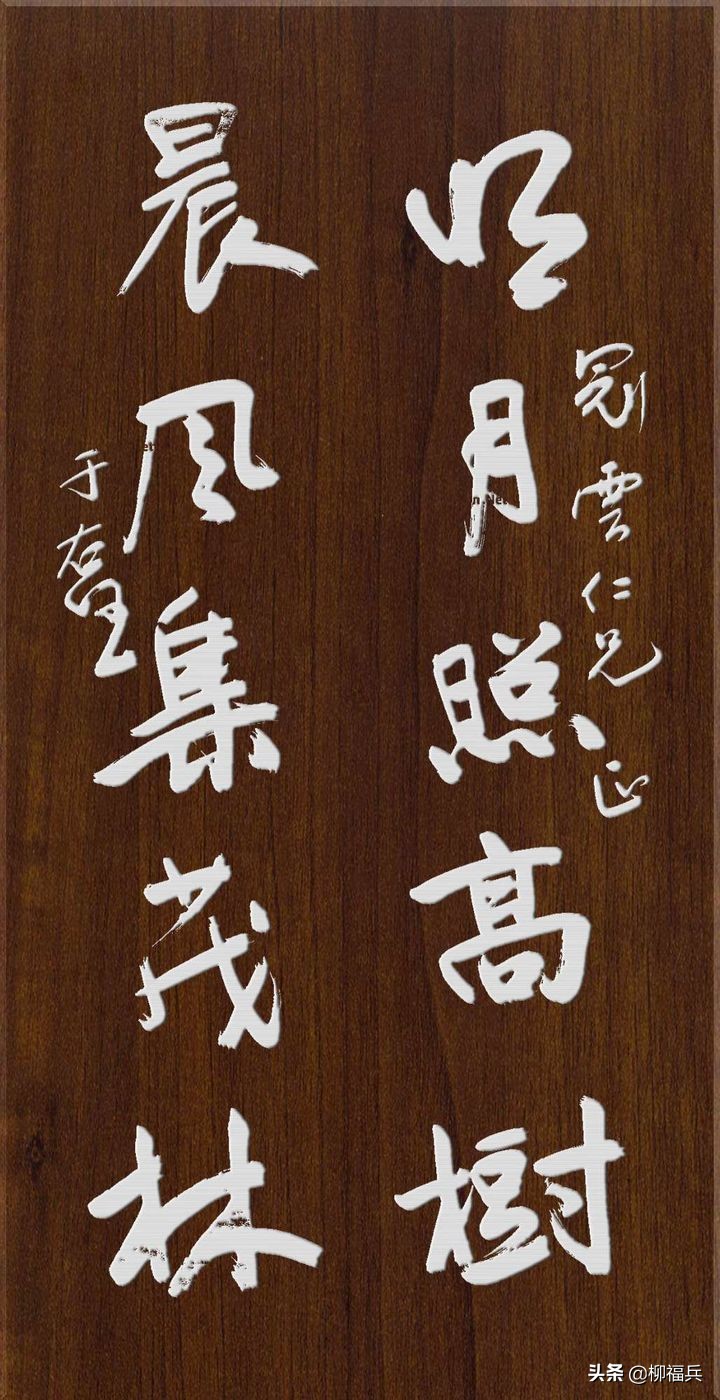 明月照高樹
雲仁兄正
晨风集茂林
于右任
头条 @柳福兵